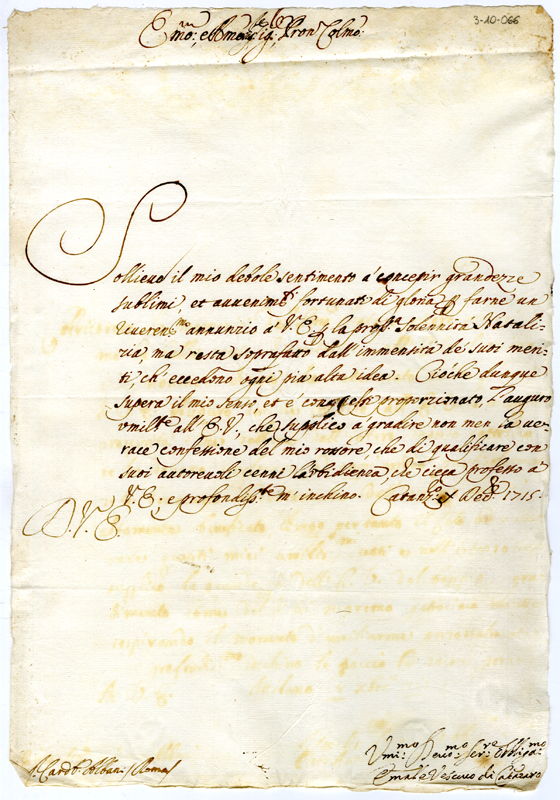 3-10-066
Emo:, e Rmo Sig:re, Pron Colmo:
Sollieuo il mio debole sentimento à concepir grandezze
sublimi, et auuenimti fortunati di gloria p farne un
riuerenmo annunzio à V. E. p la prossa Solennità Natali-
zia, ma resta soprafatto dall'immensità de' suoi meri-
ti, ch'eccedono ogni più alta idea. Ciòche dunque
supera il mio senso, et è con esse proporzionato, l'auguro
vmilte all'E. V., che supplico a gradire non men la ve-
race confessione del mio rossore che di qualificare con
suoi autoreuoli cenni l'obidienza, che cieca professo a
V. E.; e profondiste m'inchino. Catanzo X Xbre 1715.
D. V. E.
S. Card. Albani Roma
Vmi:mo Deuo:mo Ser:re Obblimo
Emale Vescouo di Catanzaro